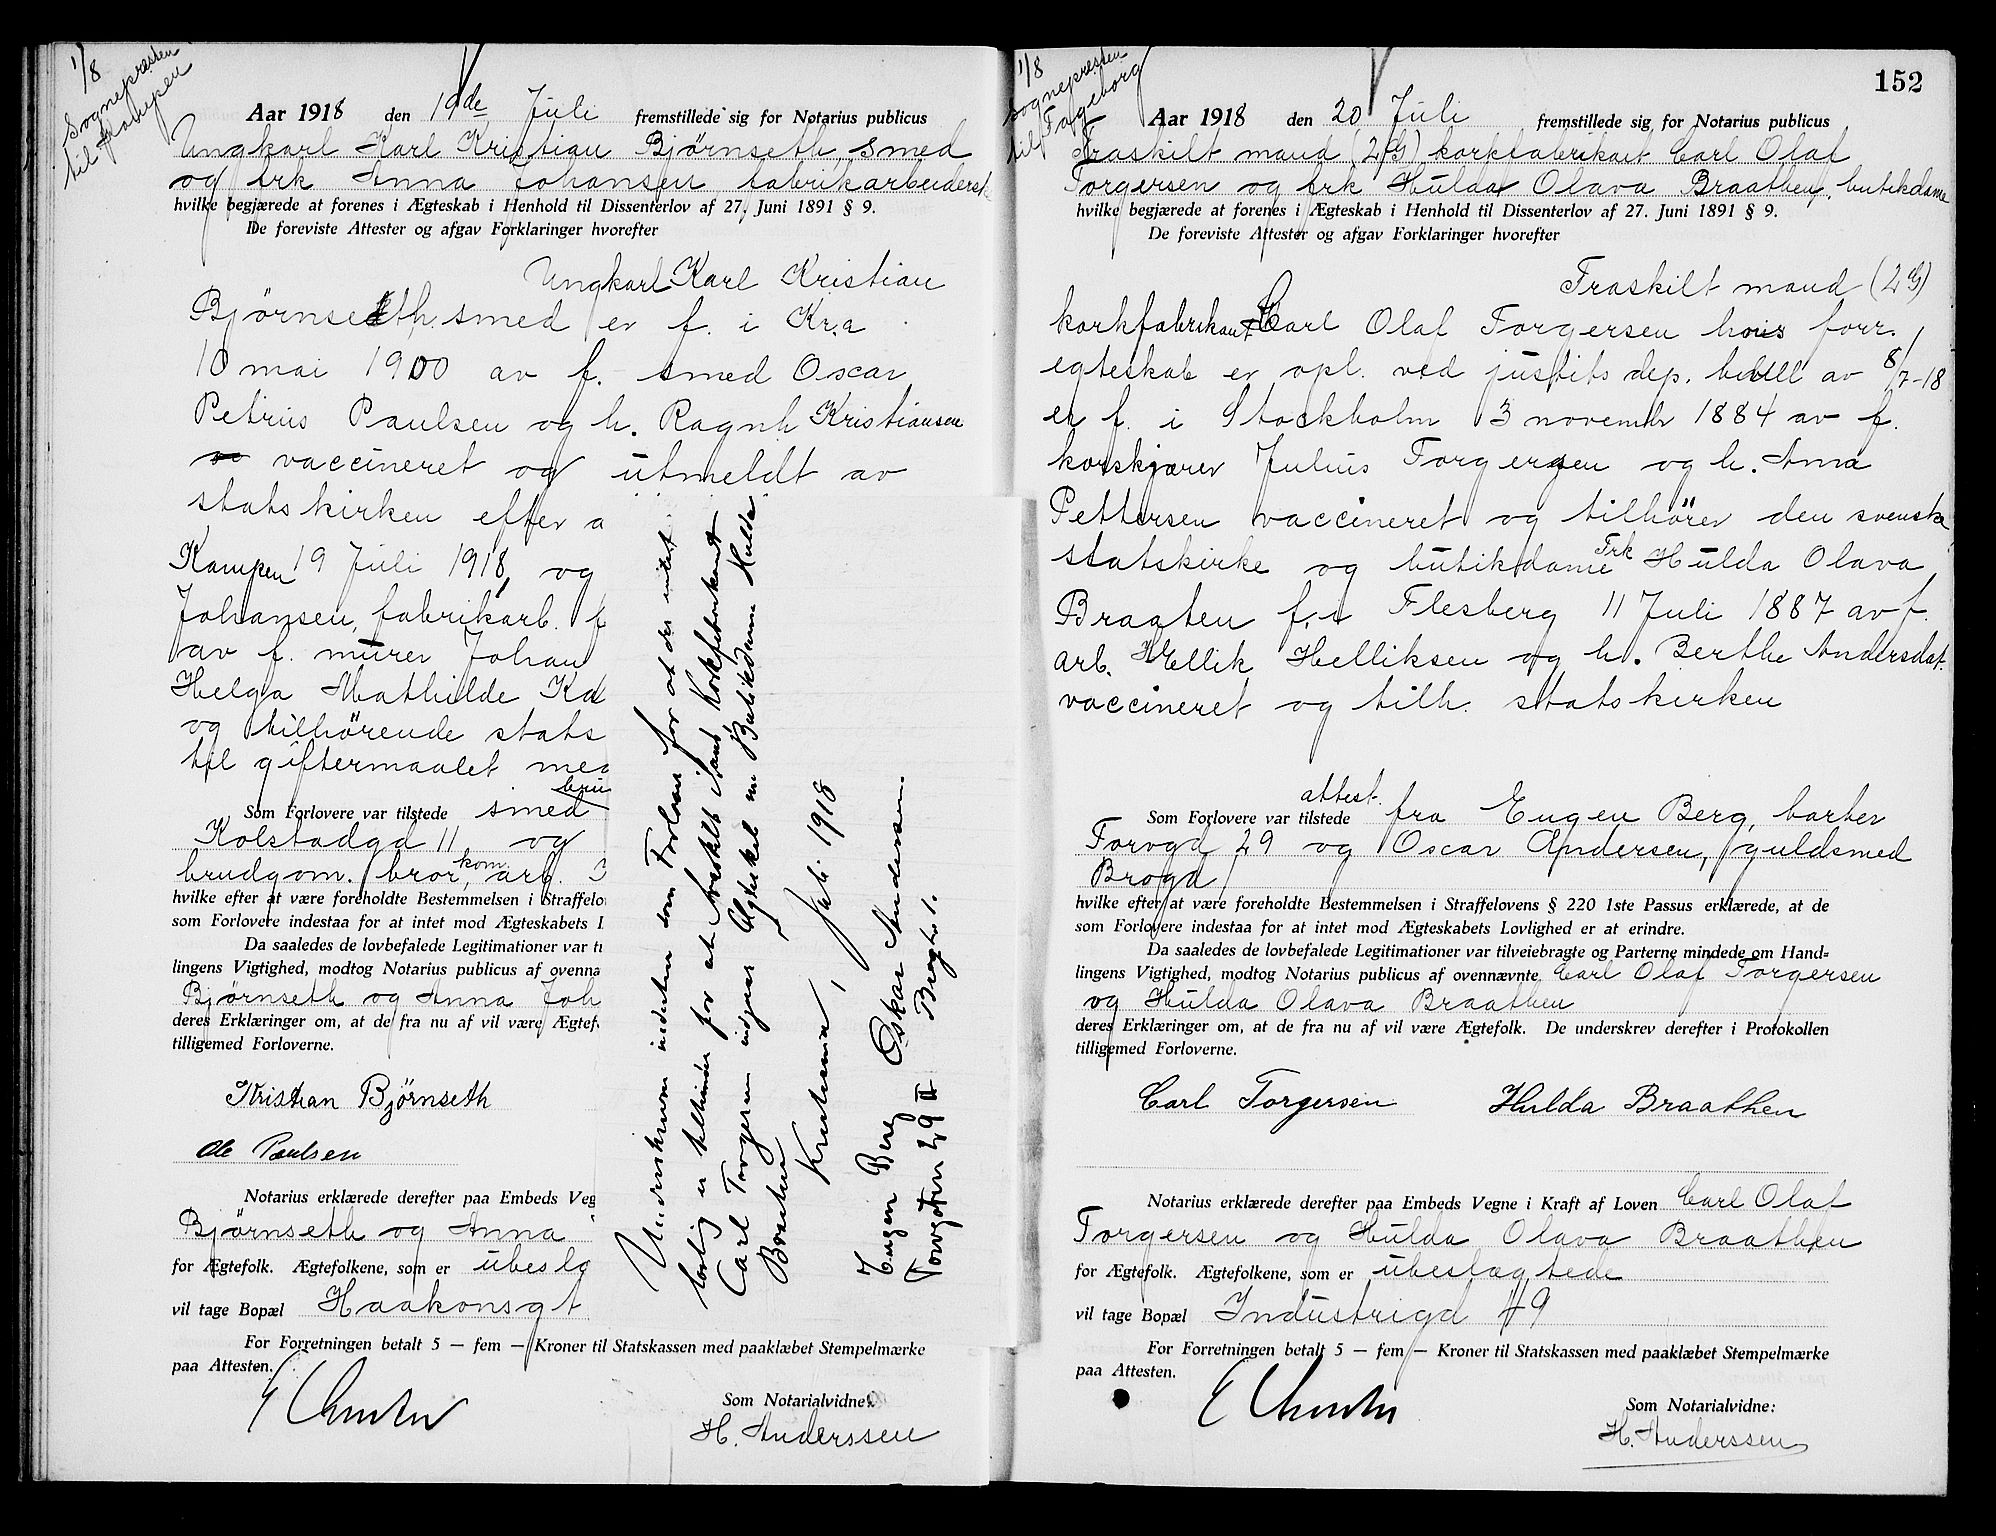 1/8
Sognepresten
til Kampen
Aar 1918 den 19de Juli fremstillede sig for Notarius publicus
Ungkarl Karl Kristian Bjørnseth, smed
og frk Anna Johansen, fabrikarbeiderske
hvilke begjærede at forenes i Ægteskab i Henhold til Dissenterlov af 27. Juni 1891 § 9.
De foreviste Attester og afgav Forklaringer hvorefter
Ungkarl Karl Kristian
Bjørnseth, smed er f. i Kr.a
10 mai 1900 av f. smed Oscar
Petrus Paulsen og h. Ragnh Kristiansen
vaccineret og utmeldt av
statskirken efter a
Kampen 19 Juli 1918, og
Johansen, fabrikarb. f
av f. murer Johan
Helga Mathilde Ka
og tilhörende stats
til giftermaalet med
bru
Som Forlovere var tilstede smed
Kolstadgd 11 og
brudgom. bror, kom. arb.
hvilke efter at være foreholdte Bestemmelsen i Straffelo
som Forlovere indestaa for at intet mod Ægteskabets L
Da saaledes de lovbefalede Legitimationer var ti
lingens Vigtighed, modtog Notarius publicus af ovennæ
Bjørnseth og Anna Joh
deres Erklæringer om, at de fra nu af vil være Ægtef
tilligemed Forloverne.
Kristian Bjørnseth
Ole Paulsen
Notarius erklærede derefter paa Embeds Veg
Bjørnseth og Anna
for Ægtefolk. Ægtefolkene, som er ubeslæ
vil tage Bopæl Haakonsgt
For Forretningen betalt 5 — fem — Kroner til Statskassen med paaklæbet Stempelmærke
paa Attesten.
Som Notarialvidne:
H. Anderssen
Underskrevne indestaar som Forlovere for at der intet
lovlig er tilhinder for at fraskilt Korkfabrikant
Carl Torgersen indgaar Ægteskab med Butikdame Hulda
Braathen
Kristiania, Juli 1918
Eugen Berg Oskar Andersen.
Torvgaten 29 III Brogt 1.
152
1/8
Sognepresten
til Fageborg
Aar 1918 den 20 Juli fremstillede sig for Notarius publicus
Fraskilt mand (2 G) korkfabrikant Carl Olaf
Torgersen og frk Hulda Olava Braathen, butikdame
hvilke begjærede at forenes i Ægteskab i Henhold til Dissenterlov af 27. Juni 1891 § 9.
De foreviste Attester og afgav Forklaringer hvorefter
Fraskilt mand (2 G)
korkfabrikant Carl Olaf Torgersen hvis forr.
egteskab er opl. ved justits dep. bevill av 8/7-18
er f. i Stockholm 3 novembr 1884 av f.
korskjærer Julius Torgersen og h. Anna
Pettersen vaccineret og tilhörer den svenske
statskirke og butikdame Frk Hulda Olava
Braaten f. i Flesberg 11 Juli 1887 av f.
arb. Hellik Helliksen og h. Berthe Andersdat.
vaccineret og tilh. statskirken
Som Forlovere var tilstede attest. fra Eugen Berg, barber
Torvgd 29 og Oscar Andersen, guldsmed
Brogd
hvilke efter at være foreholdte Bestemmelsen i Straffelovens § 220 1ste Passus erklærede, at de
som Forlovere indestaa for at intet mod Ægteskabets Lovlighed er at erindre.
Da saaledes de lovbefalede Legitimationer var tilveiebragte og Parterne mindede om Hand-
lingens Vigtighed, modtog Notarius publicus af ovennævnte Carl Olaf Torgersen
og Hulda Olava Braathen
deres Erklæringer om, at de fra nu af vil være Ægtefolk. De underskrev derefter i Protokollen
tilligemed Forloverne.
Carl Torgersen Hulda Braathen
Notarius erklærede derefter paa Embeds Vegne i Kraft af Loven Carl Olaf
Torgersen og Hulda Olava Braathen
for Ægtefolk. Ægtefolkene, som er ubeslægtede
vil tage Bopæl Industrigd 49
For Forretningen betalt 5 — fem — Kroner til Statskassen med paaklæbet Stempelmærke
paa Attesten.
Som Notarialvidne:
H. Anderssen